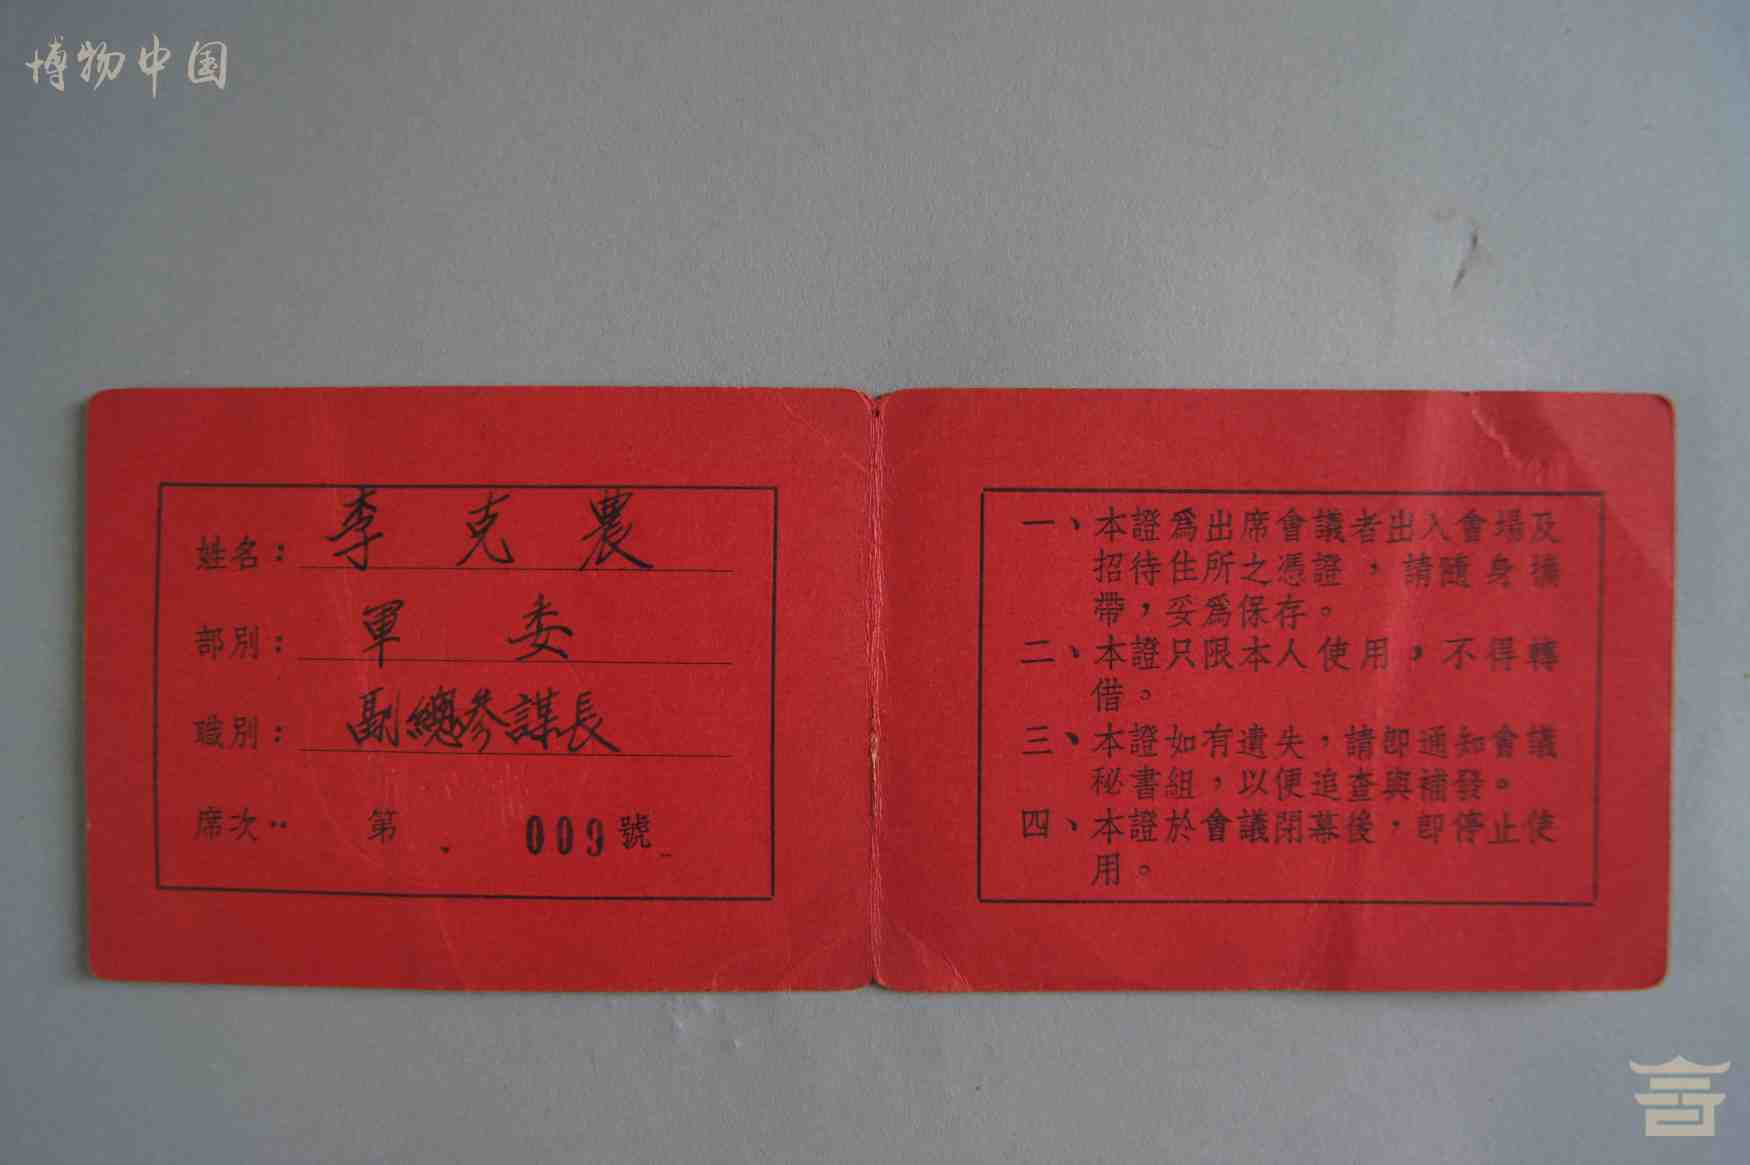 博物中国
姓名：李克農
部別：軍委
職別：副總參謀長
席次：第009號
一、本證爲出席會議者出入會場及
招待住所之憑證，請隨身攜
帶，妥爲保存。
二、本證只限本人使用，不得轉
借。
三、本證如有遺失，請卽通知會議
秘書組，以便追查與補發。
四、本證於會議閉幕後，卽停止使
用。